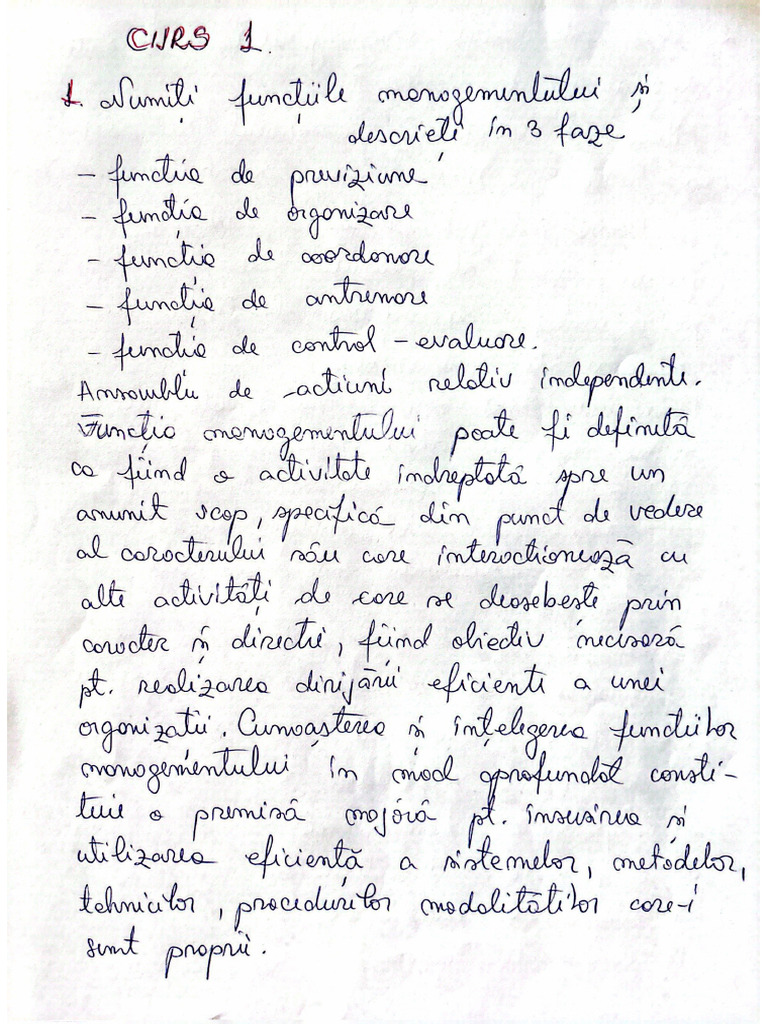 CURS 1.
1. Numiți funcțiile managementului și
descrieți în 3 faze
- functia de previziune
- funcția de organizare
- funcția de coordonare
- funcția de antrenare
- funcția de control - evaluare.
Ansamblu de actiuni relativ independente.
Funcția managementului poate fi definită
ca fiind o activitate îndreptată spre un
anumit scop, specifică din punct de vedere
al caracterului său care interactionează cu
alte activități de care se deosebeste prin
caracter și directie, fiind obiectiv necesară
pt. realizarea dirijării eficiente a unei
organizatii. Cunoașterea si înțelegerea functiilor
managementului în mod aprofundat consti-
tuie o premisă majóră pt. însusirea si
utilizarea eficientă a sistemelor, metodelor,
tehnicilor, procedurilor modalitătilor care-i
sunt proprii.